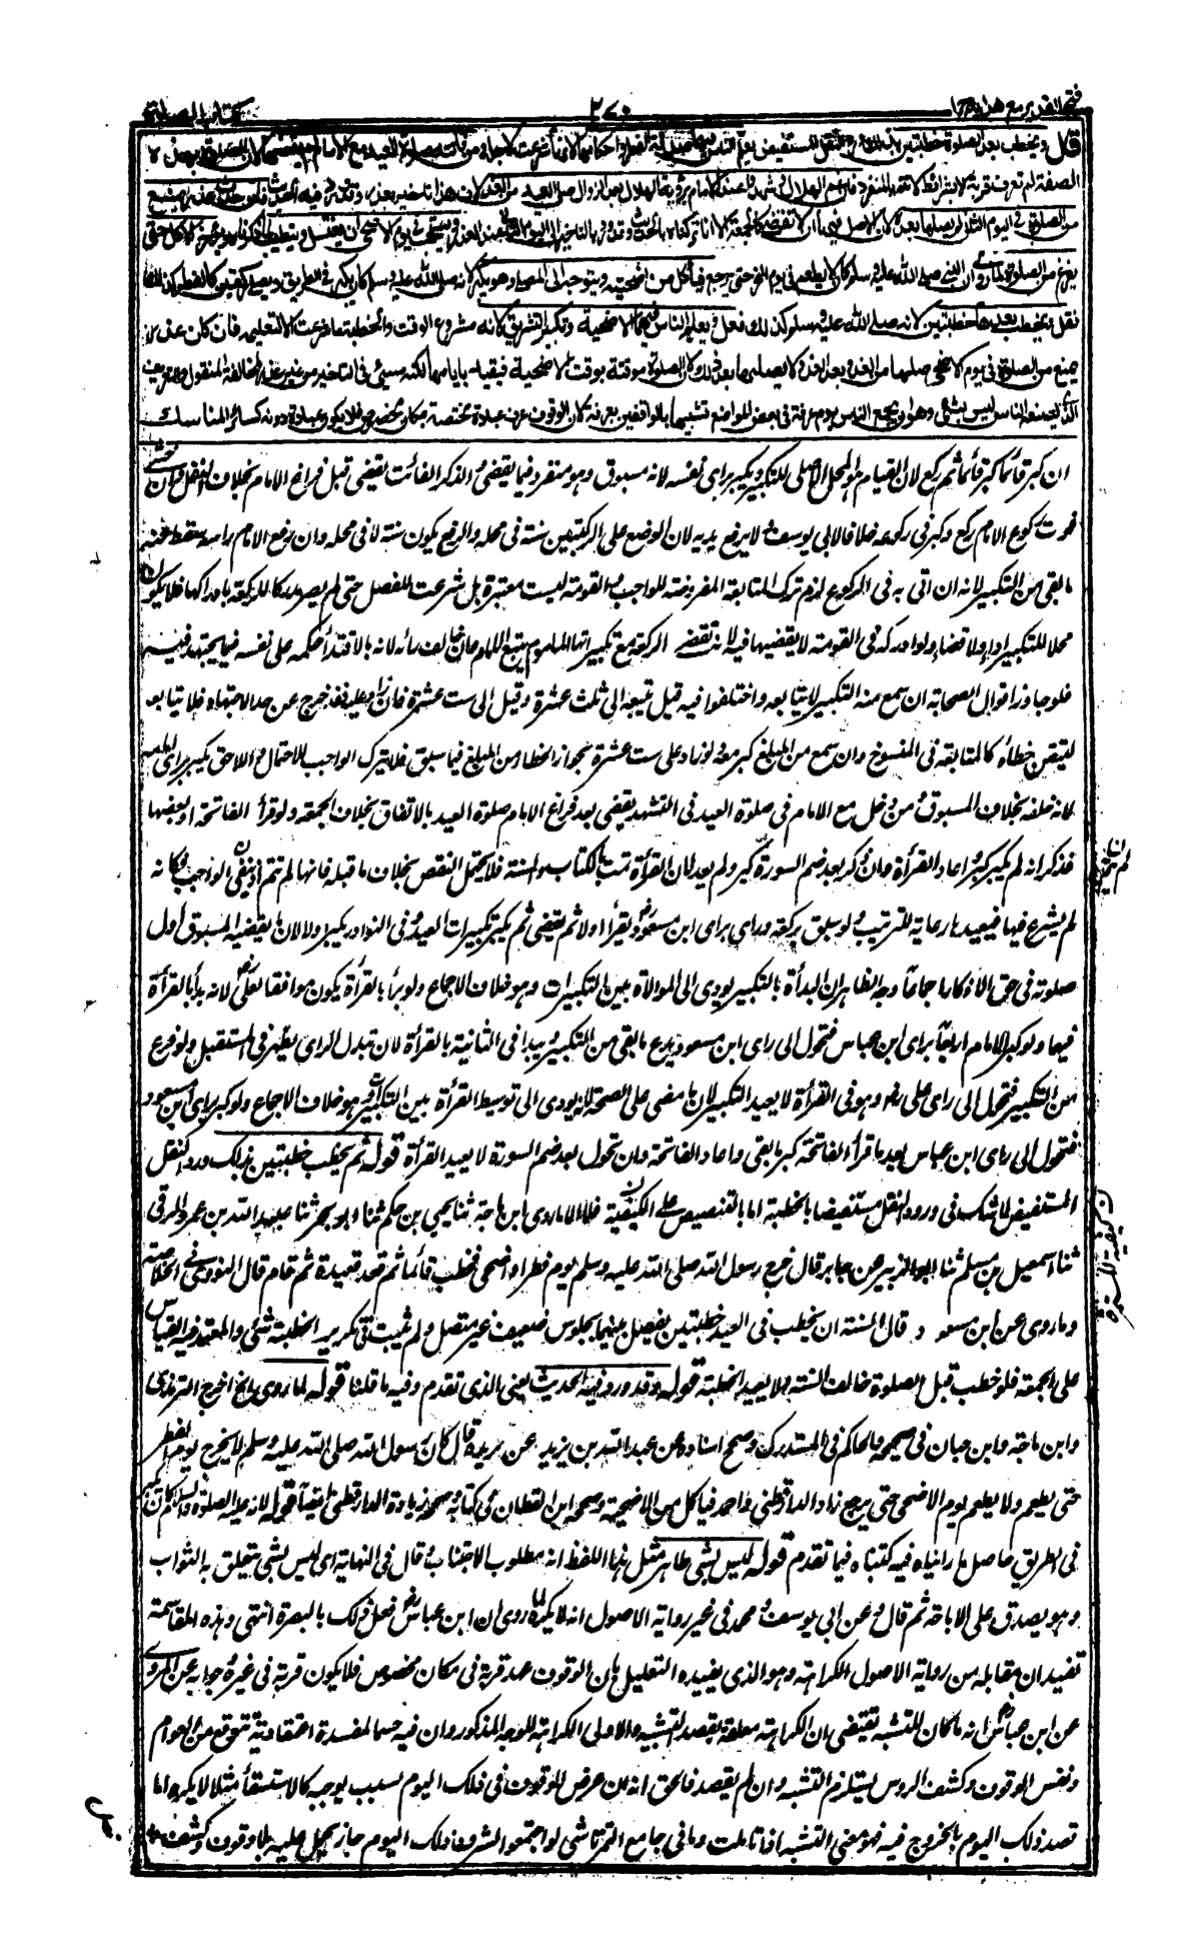 فتح القدير مع هداية ج ١
٢٧٠
كتاب الصلوة
قال ويخطب بعد الصلوة خطبتين بذلك ورد النقل المستفيض يعلم الناس فيها صدقة الفطر واحكامها لانها شرعت لاجله ومن فاتته صلوة العيد مع الامام لم يقضها لان الصلوة بهذه
الصفة لم تعرف قربة الا بشرائط لا تتم بالمنفرد فان غم الهلال وشهدوا عند الامام برؤية الهلال بعد الزوال صلى العيد من الغد لان هذا تاخير بعذر وقد ورد فيه الحديث فان حدث عذر يمنع
من الصلوة في اليوم الثاني لم يصلها بعده لان الاصل فيها ان لا تقضى كالجمعة الا انا تركناه بالحديث وقد ورد بالتاخير الى اليوم الثاني عند العذر ويستحب في يوم الاضحى ان يغتسل ويتطيب لما ذكرناه ويؤخر الاكل حتى
يفرغ من الصلوة لما روي ان النبي صلى الله عليه وسلم كان لا يطعم في يوم النحر حتى يرجع فيأكل من اضحيته ويتوجه الى المصلى وهو يكبر لانه صلى الله عليه وسلم كان يكبر في الطريق ويصلي ركعتين كالفطر كذلك
نقل ويخطب بعدها خطبتين لانه صلى الله عليه وسلم كذلك فعل ويعلم الناس فيهما الاضحية وتكبير التشريق لانه مشروع الوقت والخطبة ما شرعت الا لتعليمه فان كان عذر
يمنع من الصلوة في يوم الاضحى صلاها من الغد وبعد الغد ولا يصليها بعد ذلك لان الصلوة موقتة بوقت الاضحية فيتقيد بايامها لكنه مسيئ في التاخير من غير عذر لمخالفة المنقول والتعريف
الذي يصنعه الناس ليس بشئ وهو ان يجتمع الناس يوم عرفة في بعض المواضع تشبيها بالواقفين بعرفة لان الوقوف عرف عبادة مختصة بمكان مخصوص فلا يكون عبادة دونه كسائر المناسك
ان كبر قائما كبر قائما ثم ركع لان القيام هو المحل الاصلي للتكبير ويكبر براي نفسه لانه مسبوق وهو منفرد فيما يقضي والذكر الفائت يقضى قبل فراغ الامام بخلاف الفعل وان خشي
فوت ركوع الامام ركع وكبر في ركوعه خلافا لابي يوسف ولا يرفع يديه لان الوضع على الركبتين سنة في محله والرفع يكون سنة لا في محله وان رفع الامام راسه سقط عنه
ما بقي من التكبير لانه ان اتى به في الركوع لزم ترك المتابعة المفروضة للواجب والقومة ليست معتبرة بل شرعت للفصل حتى لم يصر مدركا للركعة بادراكها فلا يكون
محلا للتكبير اداء ولا قضاء ولو ادركه في القومة لا يقضيها فيه لانه تقضى الركعة مع تكبيراتها المأموم يتبع الامام وان خالف رأيه لانه بالاقتداء حكمه على نفسه فيما يجتهد فيه
فلو جاوز اقوال الصحابة ان سمع منه التكبير لا يتابعه واختلفوا فيه قيل يتبعه الى ثلث عشرة وقيل الى ست عشرة فان زاد عليه فقد خرج عن حد الاجتهاد فلا يتابعه
لتيقن خطأه كالمتابعة في المنسوخ وان سمع من المبلغ كبر معه ولو زاد على ست عشرة لجواز الخطا من المبلغ فيما سبق فلا يترك الواجب للاحتمال واللاحق يكبر براي امامه
لانه خلفه بخلاف المسبوق ومن دخل مع الامام في صلوة العيد في التشهد يقضي بعد فراغ الامام صلوة العيد بالاتفاق بخلاف الجمعة ولو قرأ الفاتحة او بعضها
فذكر انه لم يكبر كبر واعاد القرأة وان ذكر بعد ضم السورة كبر ولم يعد لان القرأة تمت بالكتاب والسنة فلا يحتمل النقض بخلاف ما قبله فانها لم تتم اذ بقي الواجب فكانه
لم يشرع فيها فيعيدها رعاية للترتيب ولو سبق بركعة وراى براي ابن مسعود رض يقرأ اولا ثم يقضي ثم يكبر تكبيرات العيد وفي النوادر يكبر اولا لان ما يقضيه المسبوق اول
صلوته في حق الاذكار اجماعا وجه الظاهر ان البداءة بالتكبير يودي الى الموالاة بين التكبيرات وهو خلاف الاجماع ولو بدأ بالقرأة يكون موافقا لعلي رض لانه بدأ بالقرأة
فيهما ولو كبر الامام اربعا براي ابن عباس فتحول الى راي ابن مسعود يدع ما بقي من التكبير ويبدا في الثانية بالقرأة لان تبدل الراي يظهر في المستقبل ولو فرغ
من التكبير فتحول الى راي علي رض وهو في القرأة لا يعيد التكبير لان ما مضى على الصحة لانه يودي الى توسيط القرأة بين التكبيرات وهو خلاف الاجماع ولو كبر براي ابن مسعود
فتحول الى راى ابن عباس بعد ما قرأ الفاتحة كبر ما بقي واعاد الفاتحة وان تحول بعد ضم السورة لا يعيد القرأة قوله ثم يخطب خطبتين بذلك ورد النقل
المستفيض لا شك في ورود النقل مستفيضا بالخطبة اما بالتنصيص على الكيفية فلا الا ما روى ابن ماجة ثنا يحيى بن حكيم ثنا ابو بحر ثنا عبيد الله بن عمرو الرقي
ثنا اسمعيل بن مسلم ثنا ابو الزبير عن جابر قال خرج رسول الله صلى الله عليه وسلم يوم فطر او اضحى فخطب قائما ثم قعد قعيدة ثم قام قال النووي في الخلاصة
وما روى عن ابن مسعود قال السنة ان يخطب في العيد خطبتين يفصل بينهما بجلوس ضعيف غير متصل ولم يثبت في تكرير الخطبة شئ والمعتمد فيه القياس
على الجمعة فلو خطب قبل الصلوة خالف السنة ولا يعيد الخطبة قوله وقد ورد فيه الحديث يعني الذي تقدم وفيه ما قلنا قوله لما روى الخ اخرج الترمذى
وابن ماجة وابن حبان في صحيحه والحاكم في المستدرك وصحح اسناده عن عبد الله بن بريدة عن بريدة قال كان رسول الله صلى الله عليه وسلم لا يخرج يوم الفطر
حتى يطعم ولا يطعم يوم الاضحى حتى يرجع زاد الدارقطني واحمد فياكل من الاضحية وصححه ابن القطان في كتابه وصحح زيادة الدارقطني ايضا قوله لانه عليه الصلوة والسلام كان يكبر
في الطريق حاصل ما رايناه فيه كتبناه فيما تقدم قوله ليس بشئ ظاهر مثل هذا اللفظ انه مطلوب الاجتناب وقال في النهاية اى ليس بشئ يتعلق به الثواب
وهو يصدق على الاباحة ثم قال وعن ابي يوسف ومحمد في غير رواية الاصول انه لا يكره لما روى ان ابن عباس رض فعل ذلك بالبصرة انتهى وهذه المقاسمة
تفيد ان مقابله من رواية الاصول الكراهة وهو الذي يفيده التعليل بان الوقوف عهد قربة في مكان مخصوص فلا يكون قربة في غيره وجوابه عن المروى
عن ابن عباس رض انه ما كان للتشبه يقتضي ان الكراهة معلقة بقصد التشبه والاولى الكراهة للوجه المذكور ولان فيه حسما لمفسدة اعتقادية تتوقع من العوام
ونفس الوقوف وكشف الروس يستلزم التشبه وان لم يقصد فالحق انه ان عرض للوقوف في ذلك اليوم بسبب يوجبه كالاستسقاء مثلا لا يكره اما
قصد ذلك اليوم بالخروج فيه فهو معنى التشبه اذا تاملت وما في جامع التمرتاشي لو اجتمعوا لشرف ذلك اليوم جاز يحمل عليه بلا وقوف وكشف